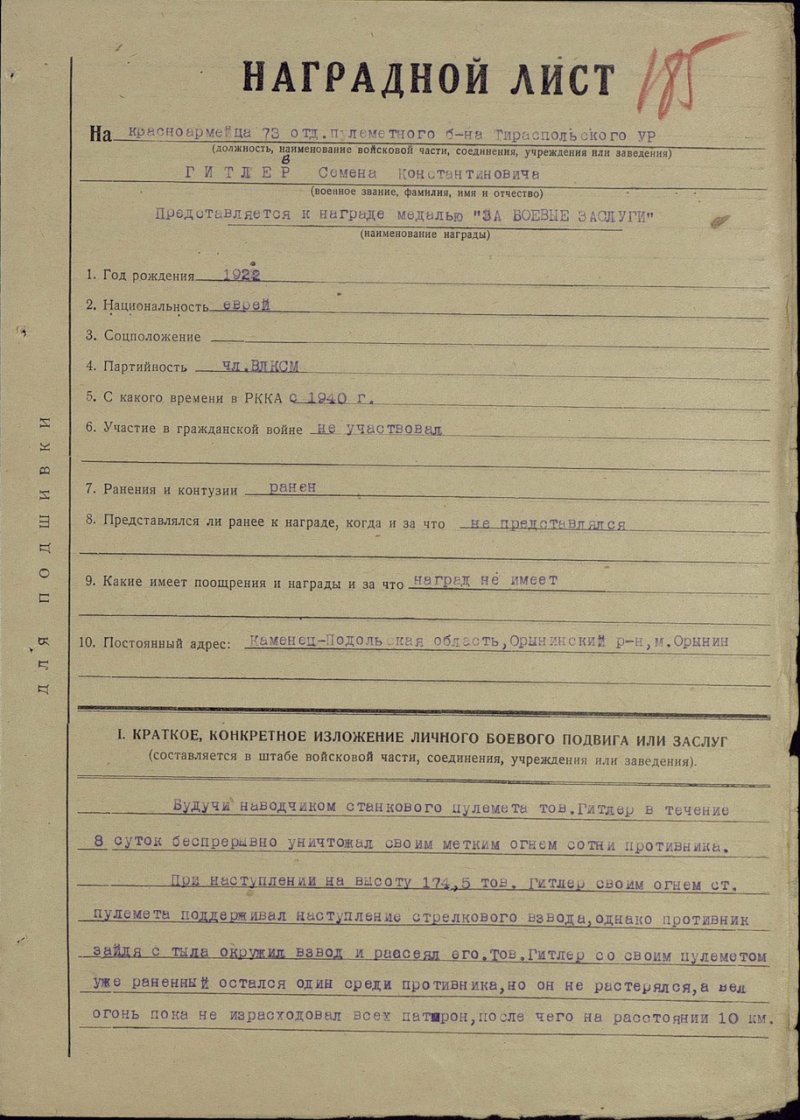 НАГРАДНОЙ ЛИСТ
185
На красноармейца 73 отд.пулеметного б-на Тираспольского УР
(должность, наименование войсковой части, соединения, учреждения или заведения)
в
Г И Т Л Е Р Семена Константиновича
(военное звание, фамилия, имя и отчество)
Представляется к награде медалью "ЗА БОЕВЫЕ ЗАСЛУГИ"
(наименование награды)
1. Год рождения 1922
2. Национальность еврей
3. Соцположение
4. Партийность чл.ВЛКСМ
5. С какого времени в РККА с 1940 г.
6. Участие в гражданской войне не участвовал
7. Ранения и контузии ранен
8. Представлялся ли ранее к награде, когда и за что не представлялся
9. Какие имеет поощрения и награды и за что наград не имеет
10. Постоянный адрес: Каменец-Подольская область,Орынинский р-н,м.Орынин
ДЛЯ ПОДШИВКИ
I. КРАТКОЕ, КОНКРЕТНОЕ ИЗЛОЖЕНИЕ ЛИЧНОГО БОЕВОГО ПОДВИГА ИЛИ ЗАСЛУГ
(составляется в штабе войсковой части, соединения, учреждения или заведения).
Будучи наводчиком станкового пулемета тов.Гитлер в течение
8 суток беспрерывно уничтожал своим метким огнем сотни противника.
При наступлении на высоту 174,5 тов. Гитлер своим огнем ст.
пулемета поддерживал наступление стрелкового взвода,однако противник
зайдя с тыла окружил взвод и рассеял его.Тов.Гитлер со своим пулеметом
уже раненный остался один среди противника,но он не растерялся,а вел
огонь пока не израсходовал всех патрон,после чего на расстоянии 10 км.